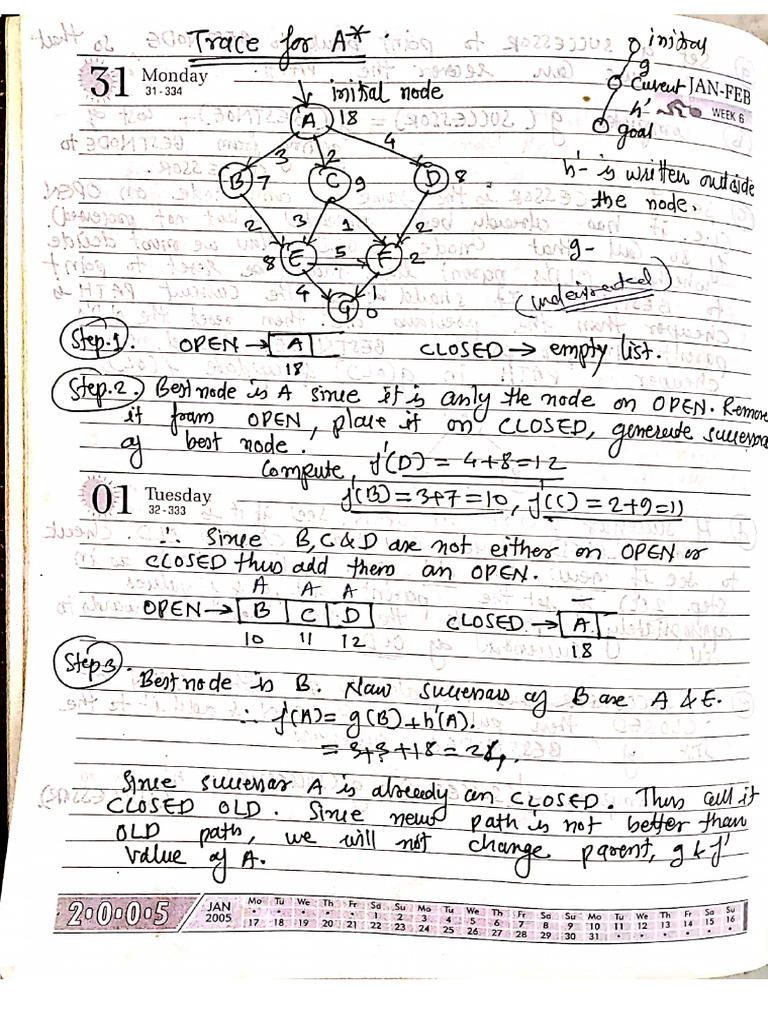 Trace for A*
31 Monday
31-334
initial node
initial
g
Current
h'
goal
JAN-FEB
WEEK 6
A 18
3 2 4
B 7 C 9 D 8
h' is written outside
the node.
2 3 1 2
g-
8 E 5 F 2
4 1
G 0
(undirected)
Step.1. OPEN → A CLOSED → empty list.
18
Step.2. Best node is A since it is only the node on OPEN. Remove
it from OPEN, place it on CLOSED, generate successors
of best node.
Compute, f'(D) = 4+8=12
01 Tuesday
32-333
f'(B)=3+7=10, f'(C)=2+9=11
∴ Since B, C & D are not either on OPEN or
CLOSED thus add them on OPEN.
A A A –
OPEN → B C D CLOSED → A
10 11 12 18
Step 3. Best node is B. Now successors of B are A & E.
∴ f'(A)= g(B)+h'(A).
= 3+3+18 = 24
Since successor A is already on CLOSED. Thus call it
CLOSED OLD. Since new path is not better than
OLD path, we will not change parent, g & f'
value of A.
2·0·0·5
JAN
2005
Mo Tu We Th Fr Sa Su Mo Tu We Th Fr Sa Su Mo Tu We Th Fr Sa Su
• • • • • 1 2 3 4 5 6 7 8 9 10 11 12 13 14 15 16
17 18 19 20 21 22 23 24 25 26 27 28 29 30 31 • • • • • •